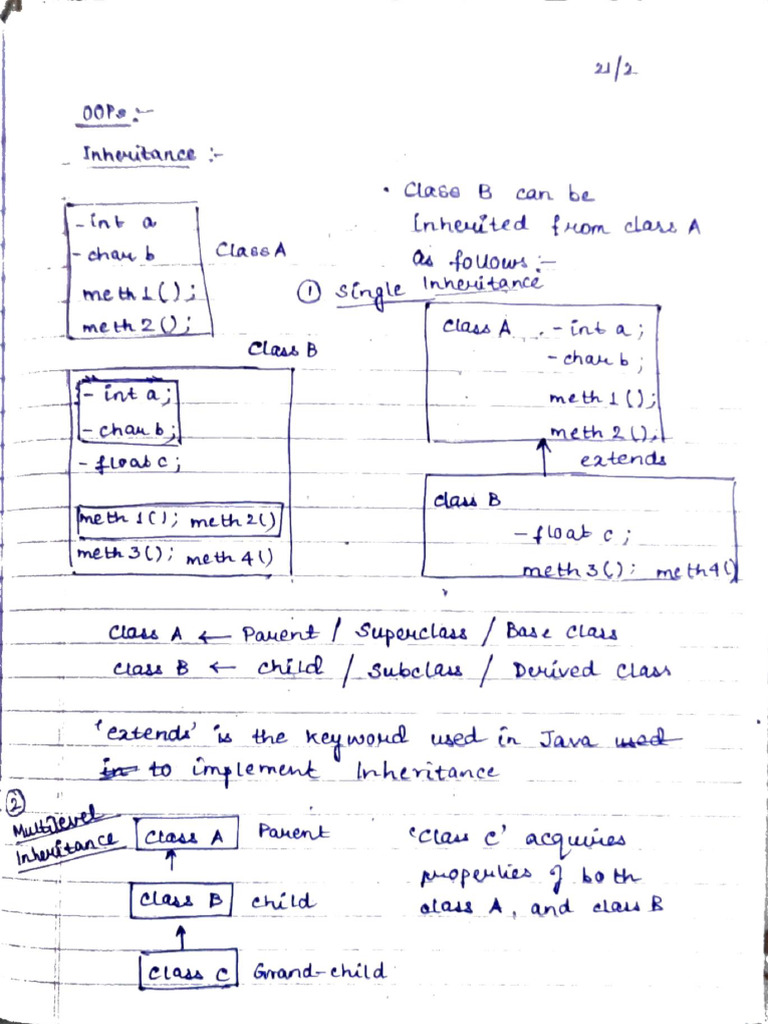 21/2
OOPs :-
Inheritance :-
- int a
- char b
meth 1 ();
meth 2 ();
Class A
• Class B can be
Inherited from class A
as follows :-
① Single Inheritance
Class B
- int a ;
- char b ;
- float c ;
meth 1 (); meth 2 ()
meth 3 (); meth 4 ()
Class A - int a ;
- char b ;
meth 1 ();
meth 2 ();
extends
class B
- float c ;
meth 3 (); meth 4 ()
Class A ← Parent / Superclass / Base class
Class B ← Child / Subclass / Derived class
'extends' is the keyword used in Java used
in to implement Inheritance
②
Multilevel
Inheritance
Class A Parent
Class B child
Class C Grand-child
'Class C' acquires
properties of both
class A, and class B